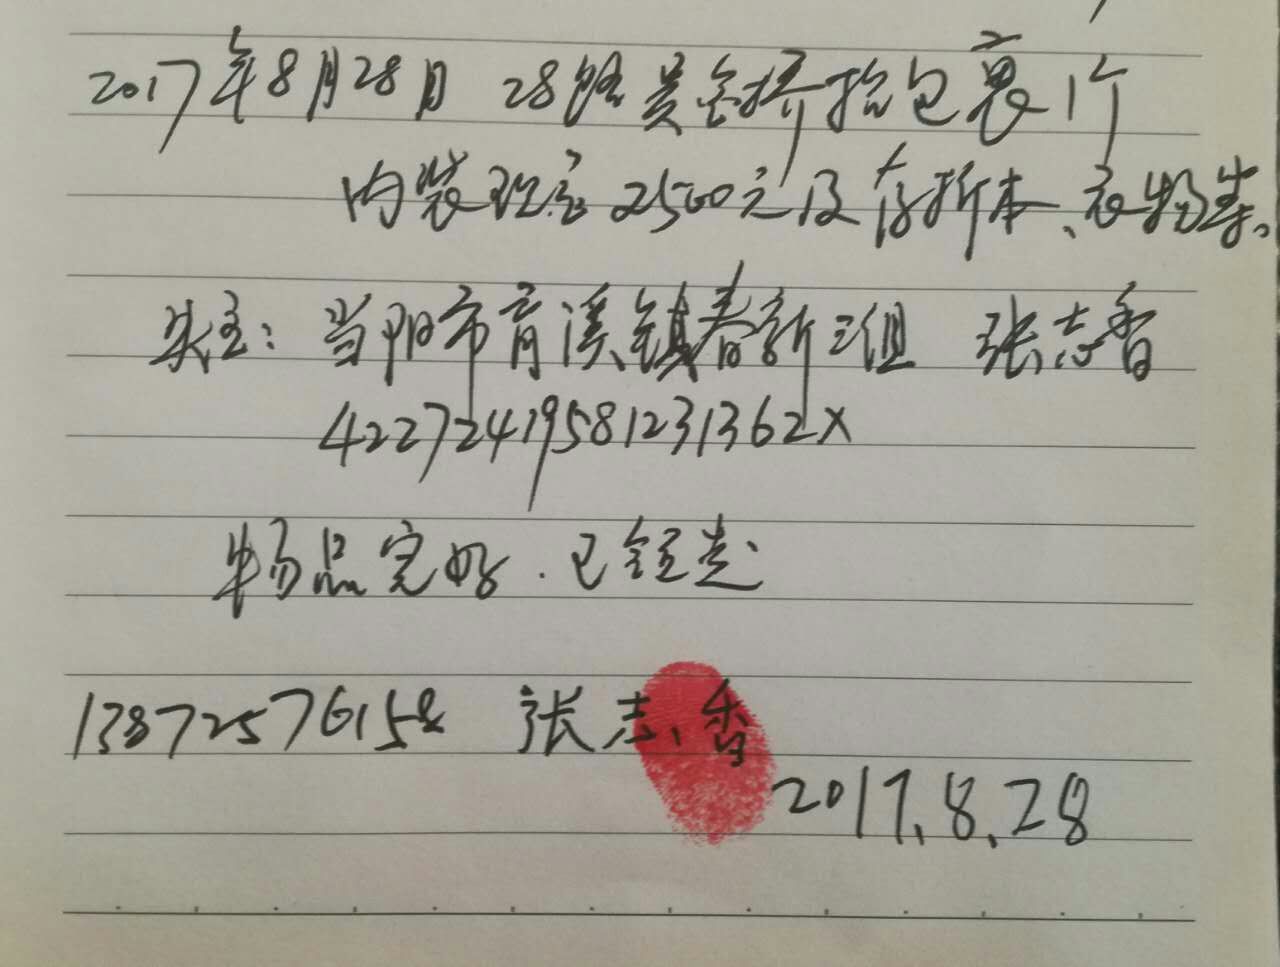 2017年8月28日 28路黄金桥拾包裹1个
内装现金2500元及存折本、衣物等。
失主：当阳市育溪镇春新三组 张志香
42272419581231362X
物品完好.已全领走
13872576158 张志香
2017.8.28